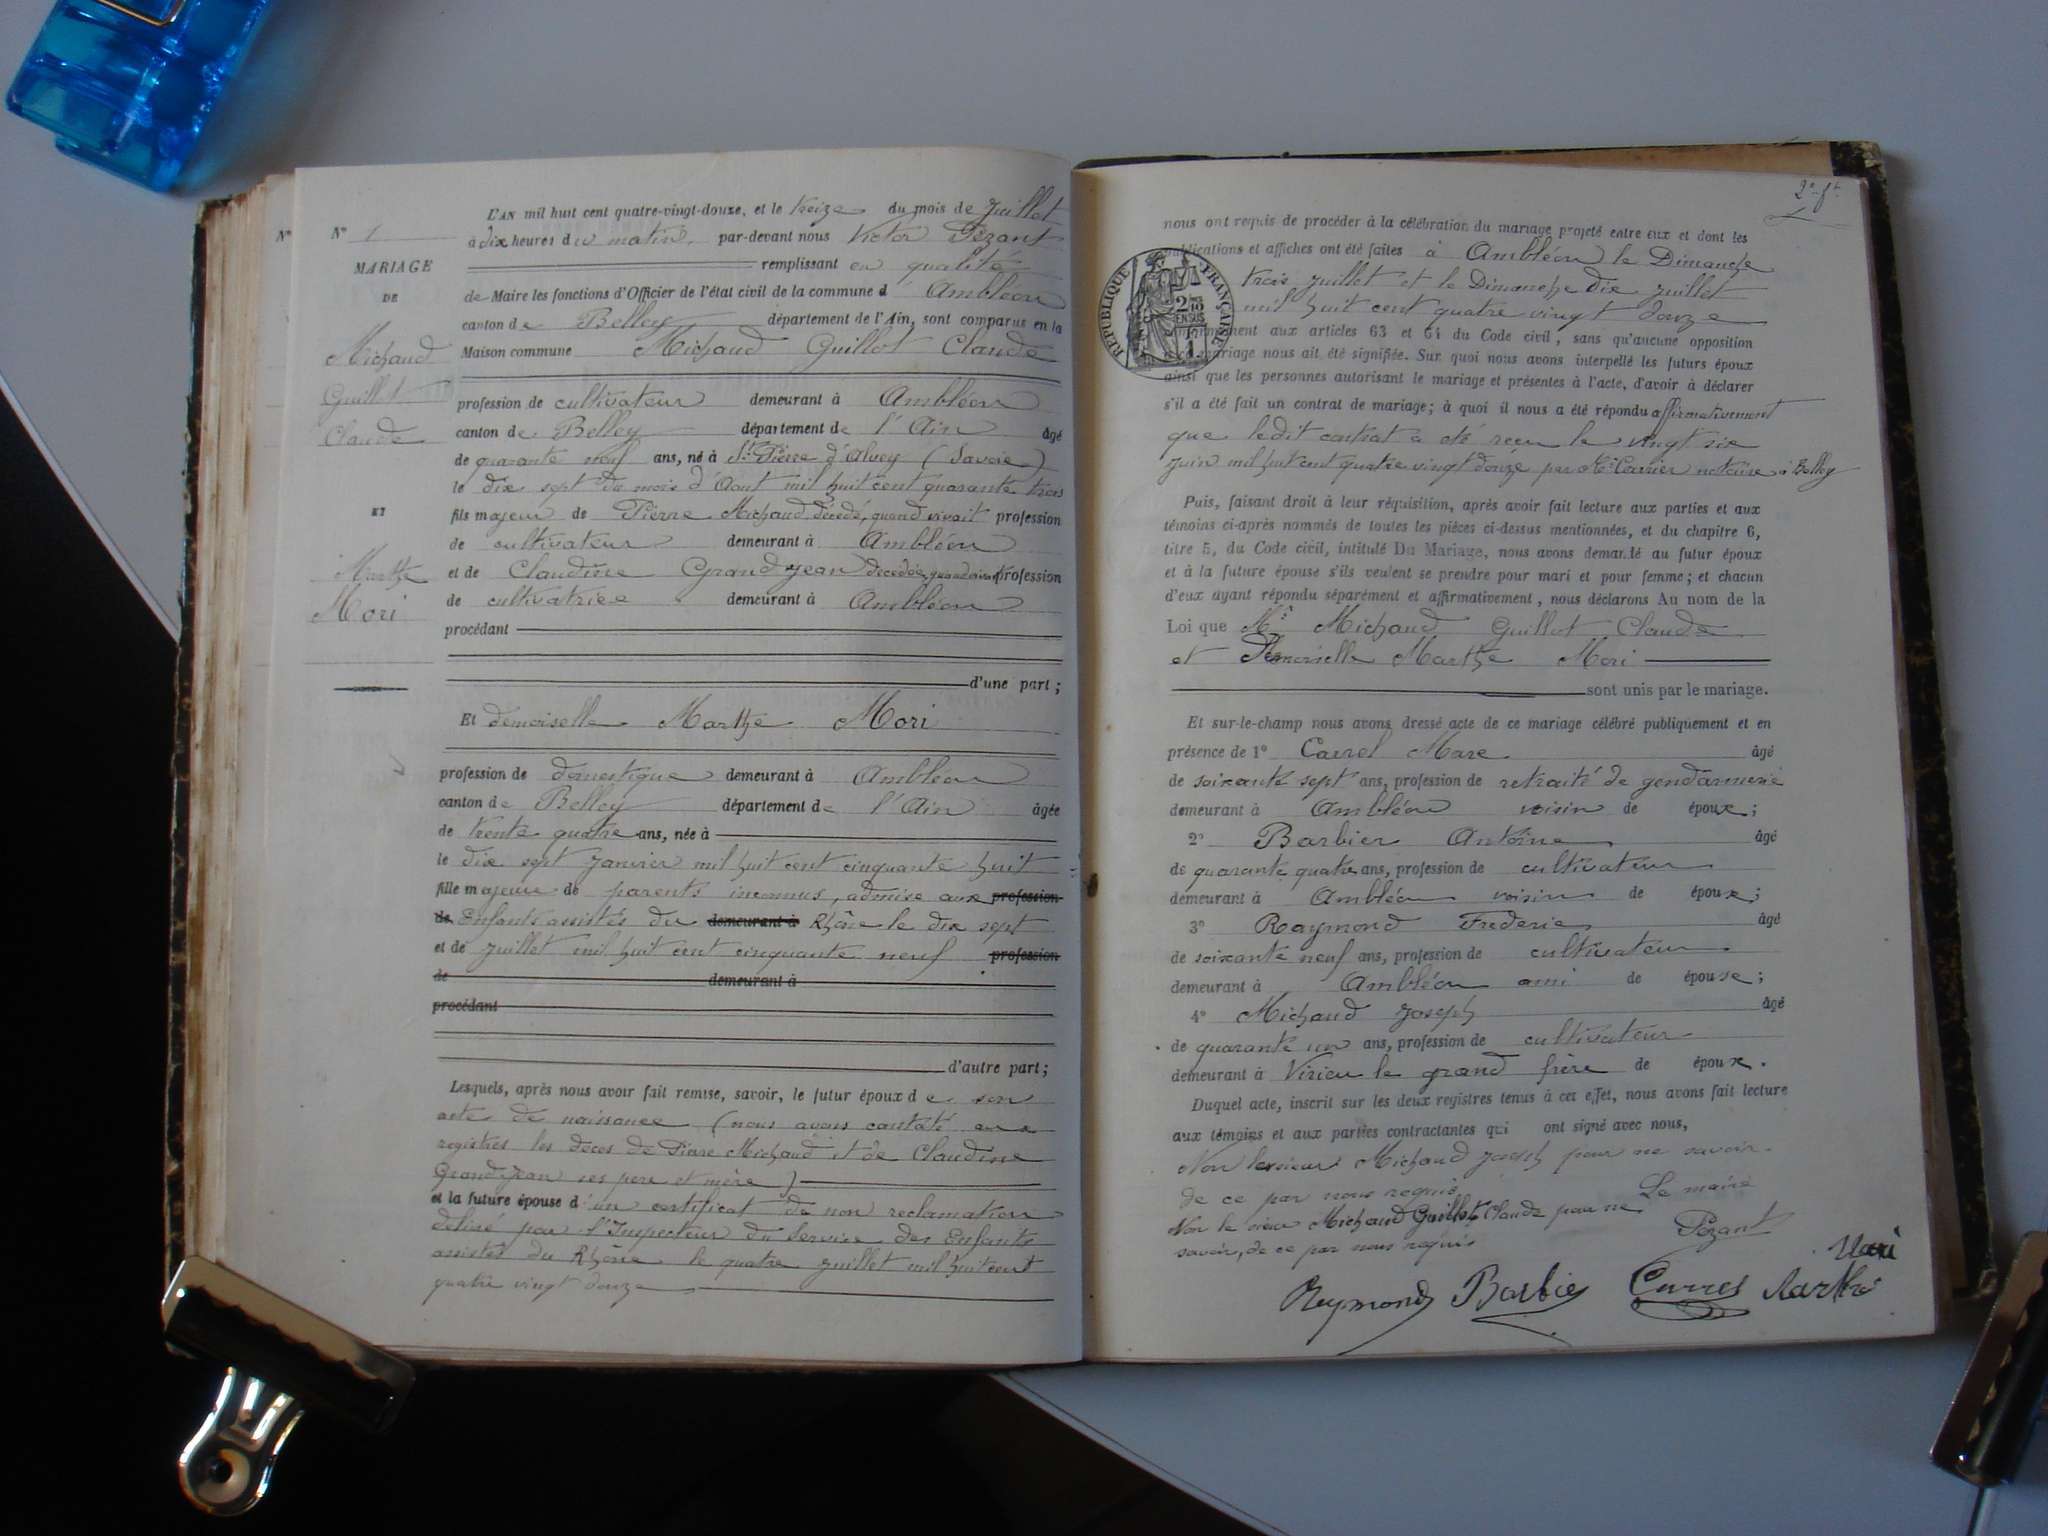 L'AN mil huit cent quatre-vingt-douze, et le treize du mois de Juillet
Nº 1
à dix heures du matin, par-devant nous Victor Pézant
MARIAGE
remplissant en qualité
DE
de Maire les fonctions d'Officier de l'état civil de la commune d Ambléon
canton de Belley département de l'Ain, sont comparus en la
Michaud
Maison commune Michaud Guillot Claude
Guillot
profession de cultivateur demeurant à Ambléon
Claude
canton de Belley département de l'Ain âgé
de quarante neuf ans, né à St Pierre d'Alvey (Savoie)
le dix sept du mois d'Aout mil huit cent quarante trois
ET
fils majeur de Pierre Michaud décédé, quand vivait profession
de cultivateur demeurant à Ambléon
Marthe
et de Claudine Grandjean décédée, quand vivait profession
Mori
de cultivatrice demeurant à Ambléon
procédant
d'une part ;
Et demoiselle Marthe Mori
profession de domestique demeurant à Ambléon
canton de Belley département de l'Ain âgée
de trente quatre ans, née à
le dix sept Janvier mil huit cent cinquante huit
fille majeure de parents inconnus, admise aux profession
de Enfants assistés du demeurant à Rhône le dix sept
et de Juillet mil huit cent cinquante neuf profession
de demeurant à
procédant
d'autre part ;
Lesquels, après nous avoir fait remise, savoir, le futur époux de son
acte de naissance (nous avons constaté aux
registres les décès de Pierre Michaud et de Claudine
Grandjean ses père et mère)
et la future épouse d'un certificat de non reclamation
délivré par l'Inspecteur du Service des Enfants
assistés du Rhône le quatre Juillet mil huit cent
quatre vingt douze
2e ft
nous ont requis de procéder à la célébration du mariage projeté entre eux et dont les
publications et affiches ont été faites à Ambléon le Dimanche
trois Juillet et le Dimanche dix Juillet
mil huit cent quatre vingt douze
REPUBLIQUE FRANÇAISE
conformément aux articles 63 et 64 du Code civil, sans qu'aucune opposition
à ce mariage nous ait été signifiée. Sur quoi nous avons interpellé les futurs époux
ainsi que les personnes autorisant le mariage et présentes à l'acte, d'avoir à déclarer
s'il a été fait un contrat de mariage ; à quoi il nous a été répondu affirmativement
que ledit contrat a été reçu le vingt six
Juin mil huit cent quatre vingt douze par Me Carrier notaire à Belley
Puis, faisant droit à leur réquisition, après avoir fait lecture aux parties et aux
témoins ci-après nommés de toutes les pièces ci-dessus mentionnées, et du chapitre 6,
titre 5, du Code civil, intitulé Du Mariage, nous avons demandé au futur époux
et à la future épouse s'ils veulent se prendre pour mari et pour femme ; et chacun
d'eux ayant répondu séparément et affirmativement, nous déclarons Au nom de la
Loi que Mr Michaud Guillot Claude
et Demoiselle Marthe Mori
sont unis par le mariage.
Et sur-le-champ nous avons dressé acte de ce mariage célébré publiquement et en
présence de 1º Carrel Marc âgé
de soixante sept ans, profession de retraité de gendarmerie
demeurant à Ambléon voisin de époux ;
2º Barbier Antoine âgé
de quarante quatre ans, profession de cultivateur
demeurant à Ambléon voisin de époux ;
3º Raymond Frederic âgé
de soixante neuf ans, profession de cultivateur
demeurant à Ambléon ami de épouse ;
4º Michaud Joseph âgé
de quarante un ans, profession de cultivateur
demeurant à Virieu le grand frère de époux .
Duquel acte, inscrit sur les deux registres tenus à cet effet, nous avons fait lecture
aux témoins et aux parties contractantes qui ont signé avec nous,
Non le sieur Michaud Joseph pour ne savoir
de ce par nous requis
Le maire
Non le sieur Michaud Guillot Claude pour ne
Pézant
savoir, de ce par nous requis
Mori
Raymond Barbier Marthe